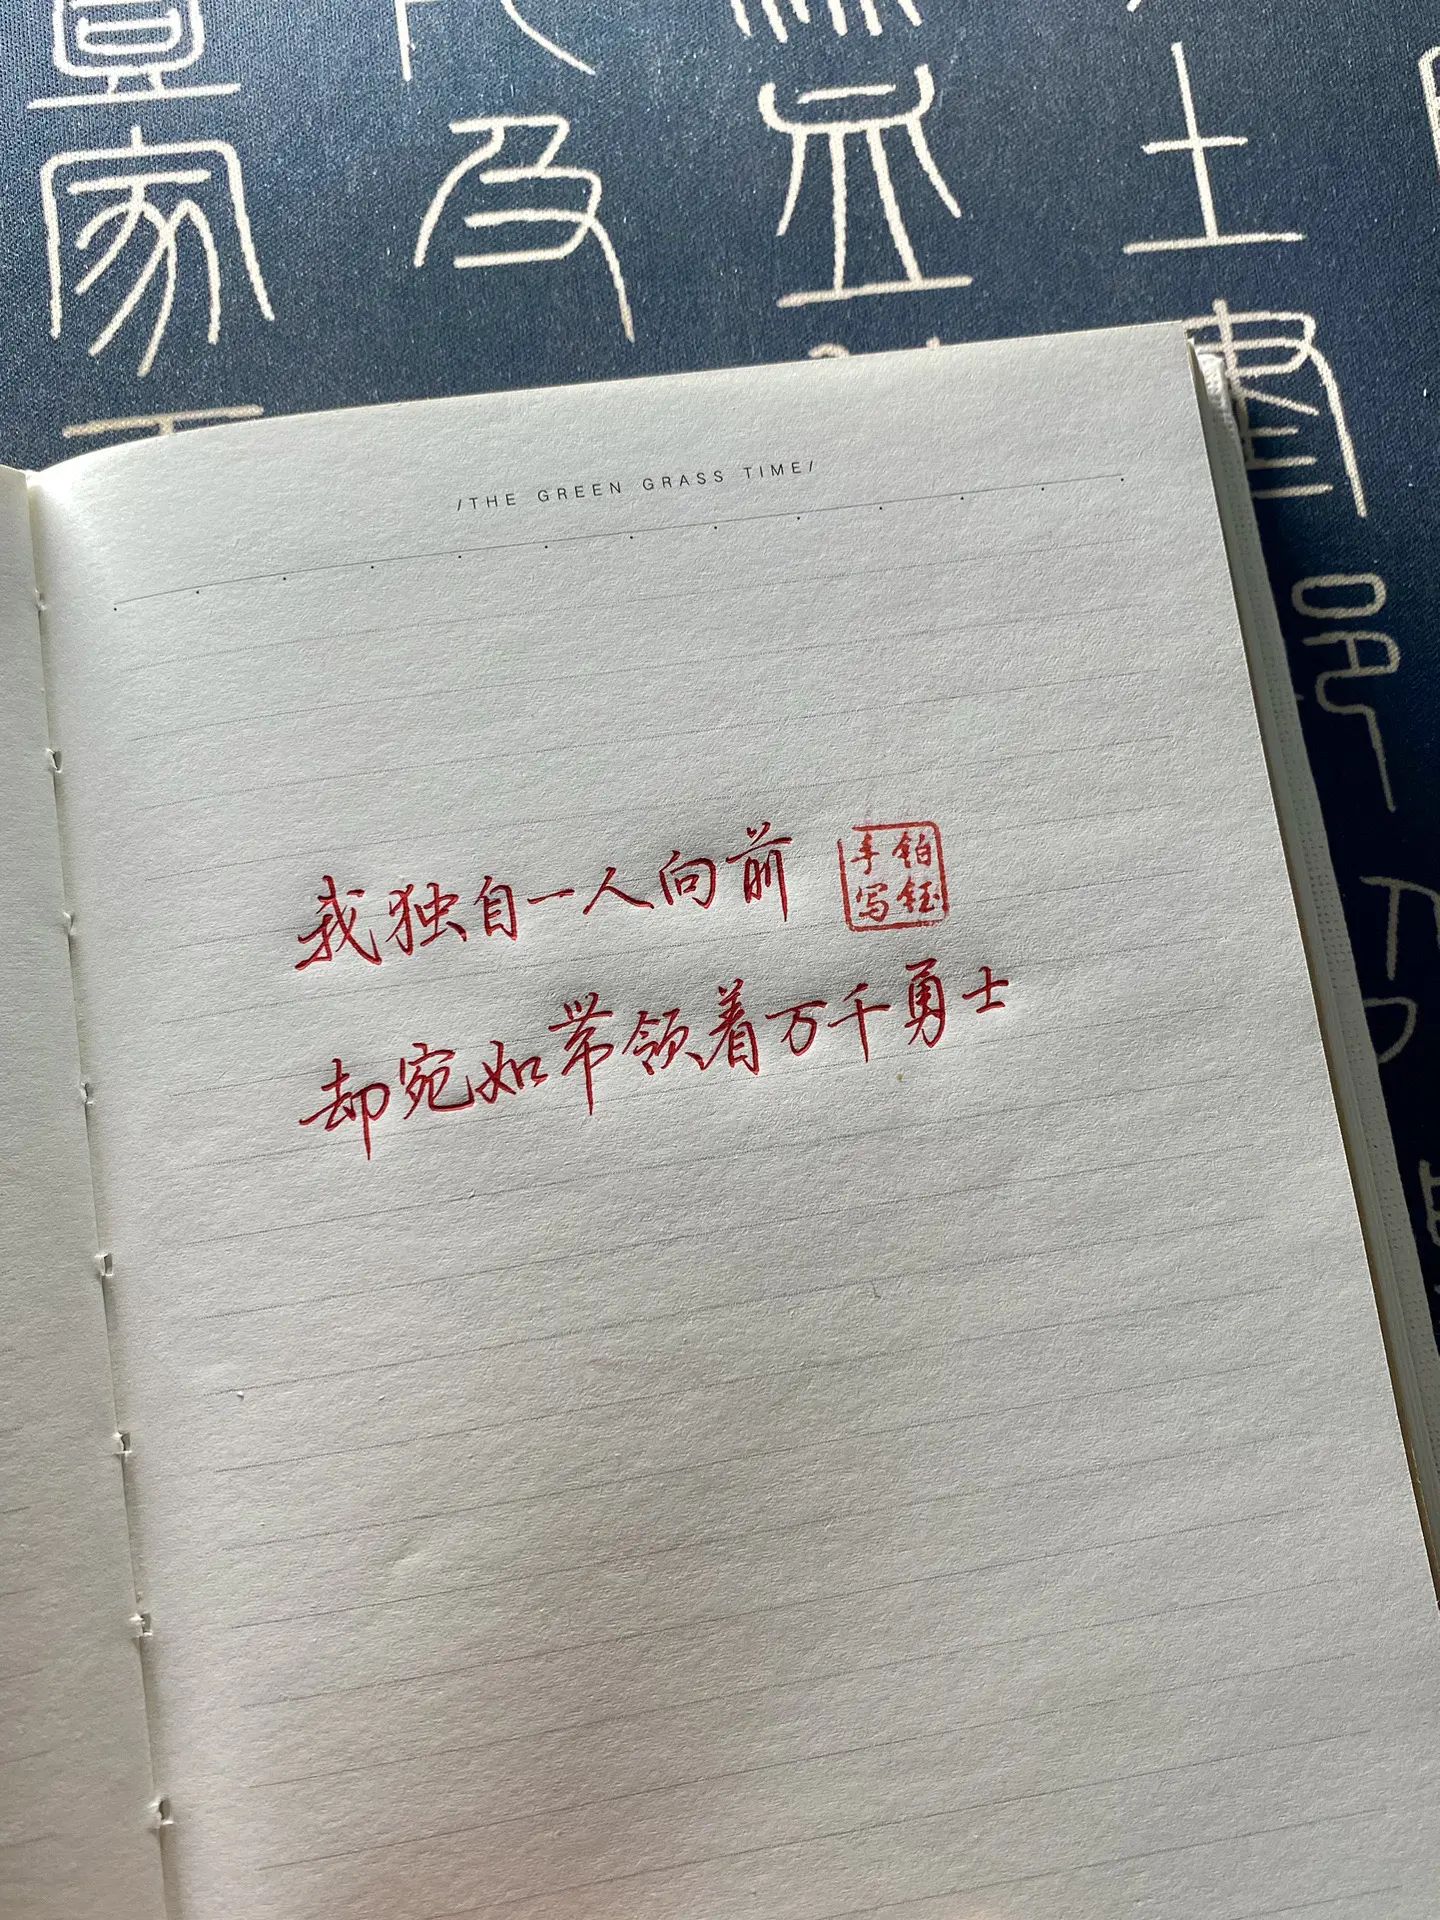 /THE GREEN GRASS TIME/
我独自一人向前
铂钰
手写
却宛如带领着万千勇士
家
及
土